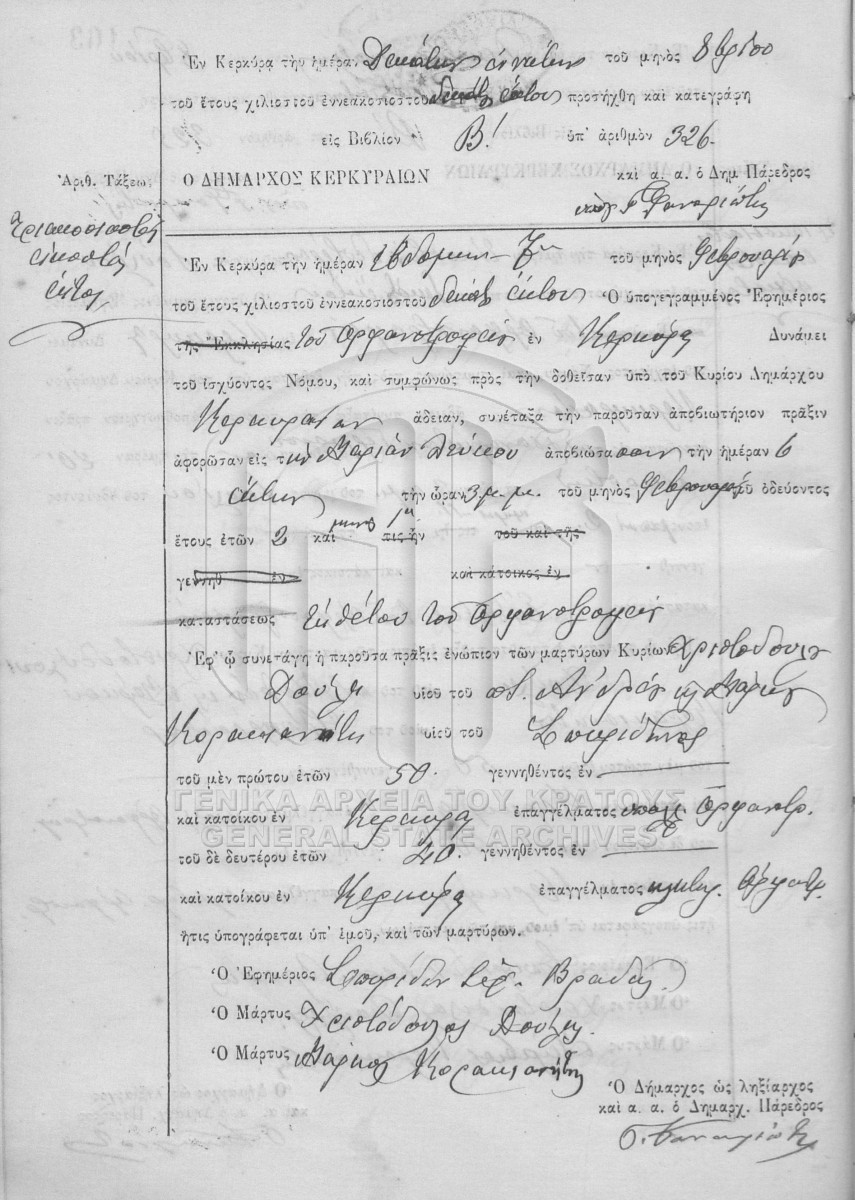 Ἐν Κερκύρᾳ τὴν ἡμέραν Δεκάτην ἐννάτην τοῦ μηνὸς 8βρίου
τοῦ ἔτους χιλιοστοῦ ἐννεακοσιοστοῦ δεκάτ ἕκτου προσήχθη καὶ κατεγράφη
εἰς Βιβλίον Β! ὑπ' ἀριθμὸν 326.
Ἀριθ. Τάξεω
Ο ΔΗΜΑΡΧΟΣ ΚΕΡΚΥΡΑΙΩΝ καὶ α. α. ὁ Δημ Πάρεδρος
Τριακοσιοστὸς
εἰκοστὸς
ἕκτος
Ἐν Κερκύρᾳ τὴν ἡμέραν ἑβδόμην 7ην τοῦ μηνὸς Φεβρουαρίου
τοῦ ἔτους χιλιοστοῦ ἐννεακοσιοστοῦ δεκάτ ἕκτου Ὁ ὑπογεγραμμένος Ἐφημέριος
τῆς Ἐκκλησίας τοῦ Ὀρφανοτροφείου ἐν Κερκύρᾳ Δυνάμει
τοῦ ἰσχύοντος Νόμου, καὶ συμφώνως πρὸς τὴν δοθεῖσαν ὑπὸ τοῦ Κυρίου Δημάρχου
Κερκυραίων ἄδειαν, συνέταξα τὴν παροῦσαν ἀποβιωτήριον πρᾶξιν
ἀφορῶσαν εἰς τὴν Μαρίαν Λεύκου ἀποβιώσασαν τὴν ἡμέραν 6
ἕκτην τὴν ὥραν 3 μ. μ. τοῦ μηνὸς Φεβρουαρίου τοῦ ὁδεύοντος
ἔτους ἐτῶν 2 καὶ μηνὸς τις ἦν τοῦ καὶ τῆς
γεννηθ ἐν καὶ κάτοικος ἐν
καταστάσεως ἐκθέτου τοῦ Ὀρφανοτροφείου
Ἐφ' ᾧ συνετάγη ἡ παροῦσα πρᾶξις ἐνώπιον τῶν μαρτύρων Κυρίων Χριστοδούλου
Δούλη υἱοῦ τοῦ ποτ. Ἀνδρέου καὶ Μάρκου
Κορακιανίτη υἱοῦ τοῦ Σπυρίδωνος
τοῦ μὲν πρώτου ἐτῶν 50. γεννηθέντος ἐν
ΓΕΝΙΚΑ ΑΡΧΕΙΑ ΤΟΥ ΚΡΑΤΟΥΣ
καὶ κατοίκου ἐν Κερκύρᾳ ἐπαγγέλματος Ὀρφανοτρ.
GENERAL STATE ARCHIVES
τοῦ δὲ δευτέρου ἐτῶν 40. γεννηθέντος ἐν
καὶ κατοίκου ἐν Κερκύρᾳ ἐπαγγέλματος Ὀρφανοτρ.
ἥτις ὑπογράφεται ὑπ' ἐμοῦ, καὶ τῶν μαρτύρων.
Ὁ Ἐφημέριος Σπυρίδων ἱερ. Βραδῆς
Ὁ Μάρτυς Χριστόδουλος Δούλης
Ὁ Μάρτυς Μάρκος Κορακιανίτης
Ὁ Δήμαρχος ὡς ληξίαρχος
καὶ α. α. ὁ Δημαρχ. Πάρεδρος